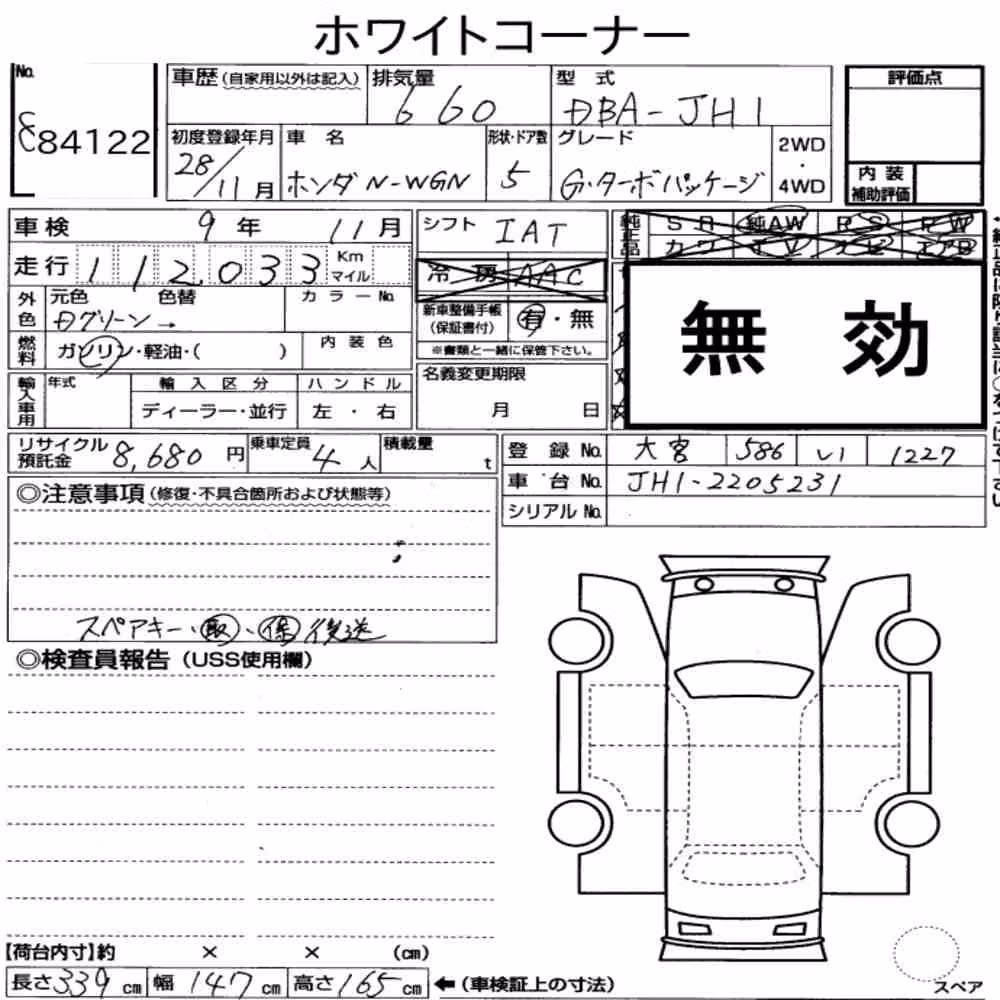 ホワイトコーナー
No. 84122
車歴(自家用以外は記入) 排気量 660 型式 DBA-JH1 評価点
初度登録年月 28/11月 車名 ホンダ N-WGN 形状・ドア数 5 グレード G・ターボパッケージ 2WD・4WD
内装補助評価
車検 9年 11月 シフト IAT 純正品 SR 純AW PS PW
カワ TV ナビ エアB
走行 112,033 Km マイル 冷房 AAC
外色 元色 色替 カラーNo.
Dグリーン→
新車整備手帳(保証書付) 有・無
※書類と一緒に保管下さい。
無効
燃料 ガソリン・軽油・( ) 内装色
輸入車用 年式 輸入区分 ハンドル
ディーラー・並行 左・右
名義変更期限
月 日
リサイクル預託金 8,680円 乗車定員 4人 積載量 t
登録No. 大宮 586 い 1227
車台No. JH1-2205231
シリアルNo.
◎注意事項(修復・不具合箇所および状態等)
スペアキー・取・保後送
◎検査員報告(USS使用欄)
【荷台内寸】約 × × (cm)
長さ339cm 幅147cm 高さ165cm ←(車検証上の寸法)
スペア